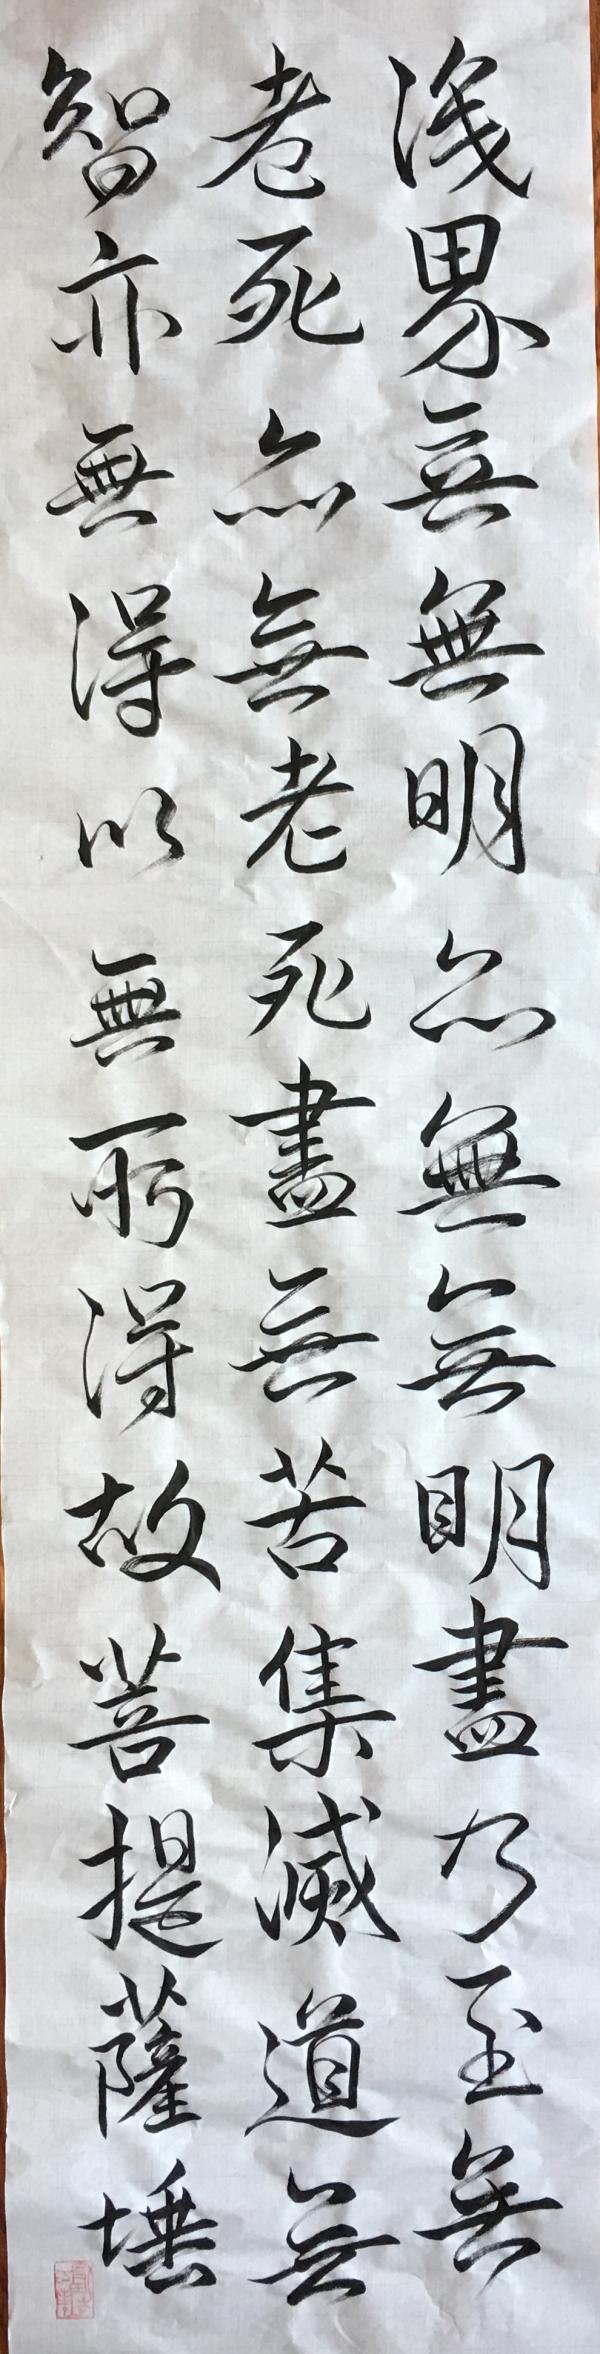 識界無無明亦無無明盡乃至無
老死亦無老死盡無苦集滅道無
智亦無得以無所得故菩提薩埵